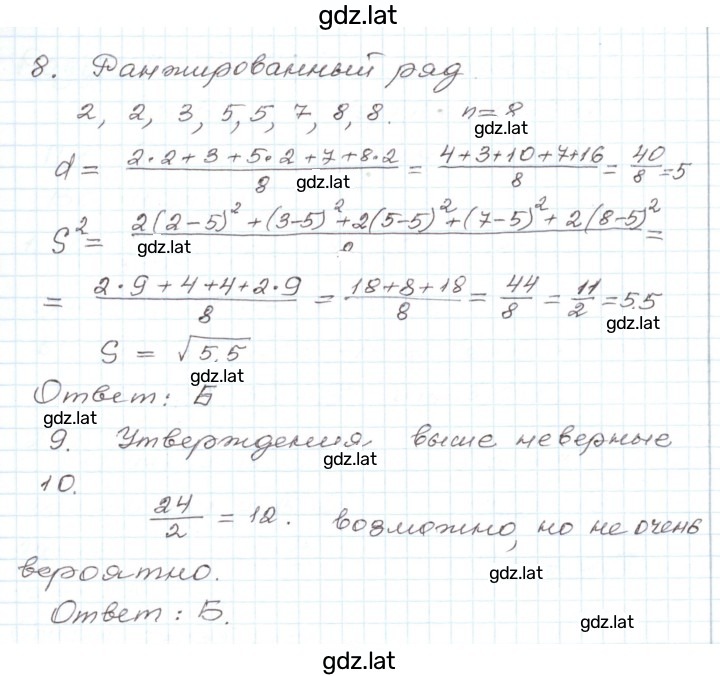 gdz.lat
8. Ранжированный ряд
2, 2, 3, 5, 5, 7, 8, 8. n = 8
gdz.lat
d = (2·2+3+5·2+7+8·2)/8 = (4+3+10+7+16)/8 = 40/8 = 5
gdz.lat
S² = (2(2-5)²+(3-5)²+2(5-5)²+(7-5)²+2(8-5)²)/8 =
gdz.lat
= (2·9+4+4+2·9)/8 = (18+8+18)/8 = 44/8 = 11/2 = 5.5
gdz.lat
S = √5.5
gdz.lat
Ответ: Б
gdz.lat
9. Утверждения выше неверные
gdz.lat
10.
24/2 = 12. возможно, но не очень
вероятно.
gdz.lat
Ответ: Б.
gdz.lat
gdz.lat